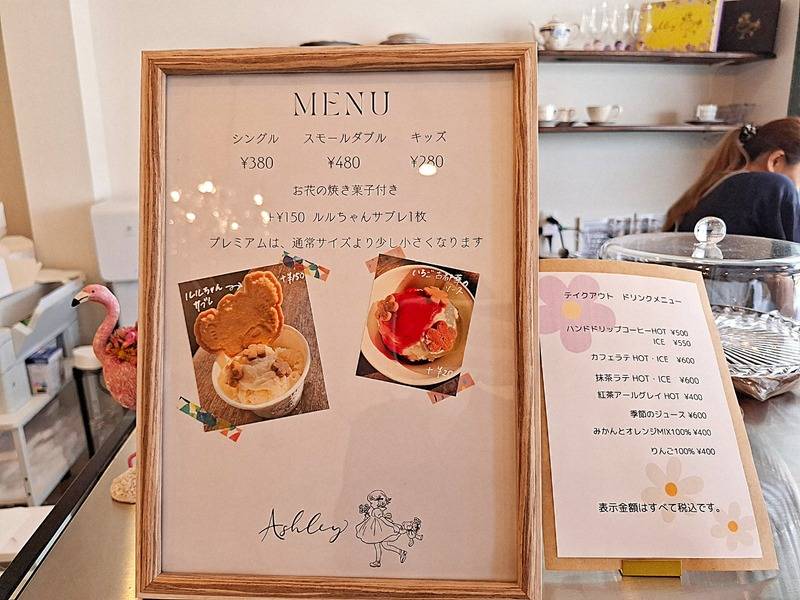 MENU
シングル スモールダブル キッズ
¥380 ¥480 ¥280
お花の焼き菓子付き
+¥150 ルルちゃんサブレ1枚
プレミアムは、通常サイズより少し小さくなります
ルルちゃん
サブレ
+¥150
いちご
ソース
Ashley
テイクアウト ドリンクメニュー
ハンドドリップコーヒーHOT ¥500
ICE ¥550
カフェラテ HOT・ICE ¥600
抹茶ラテ HOT・ICE ¥600
紅茶アールグレイ HOT ¥400
季節のジュース ¥600
みかんとオレンジMIX100% ¥400
りんご100% ¥400
表示金額はすべて税込です。